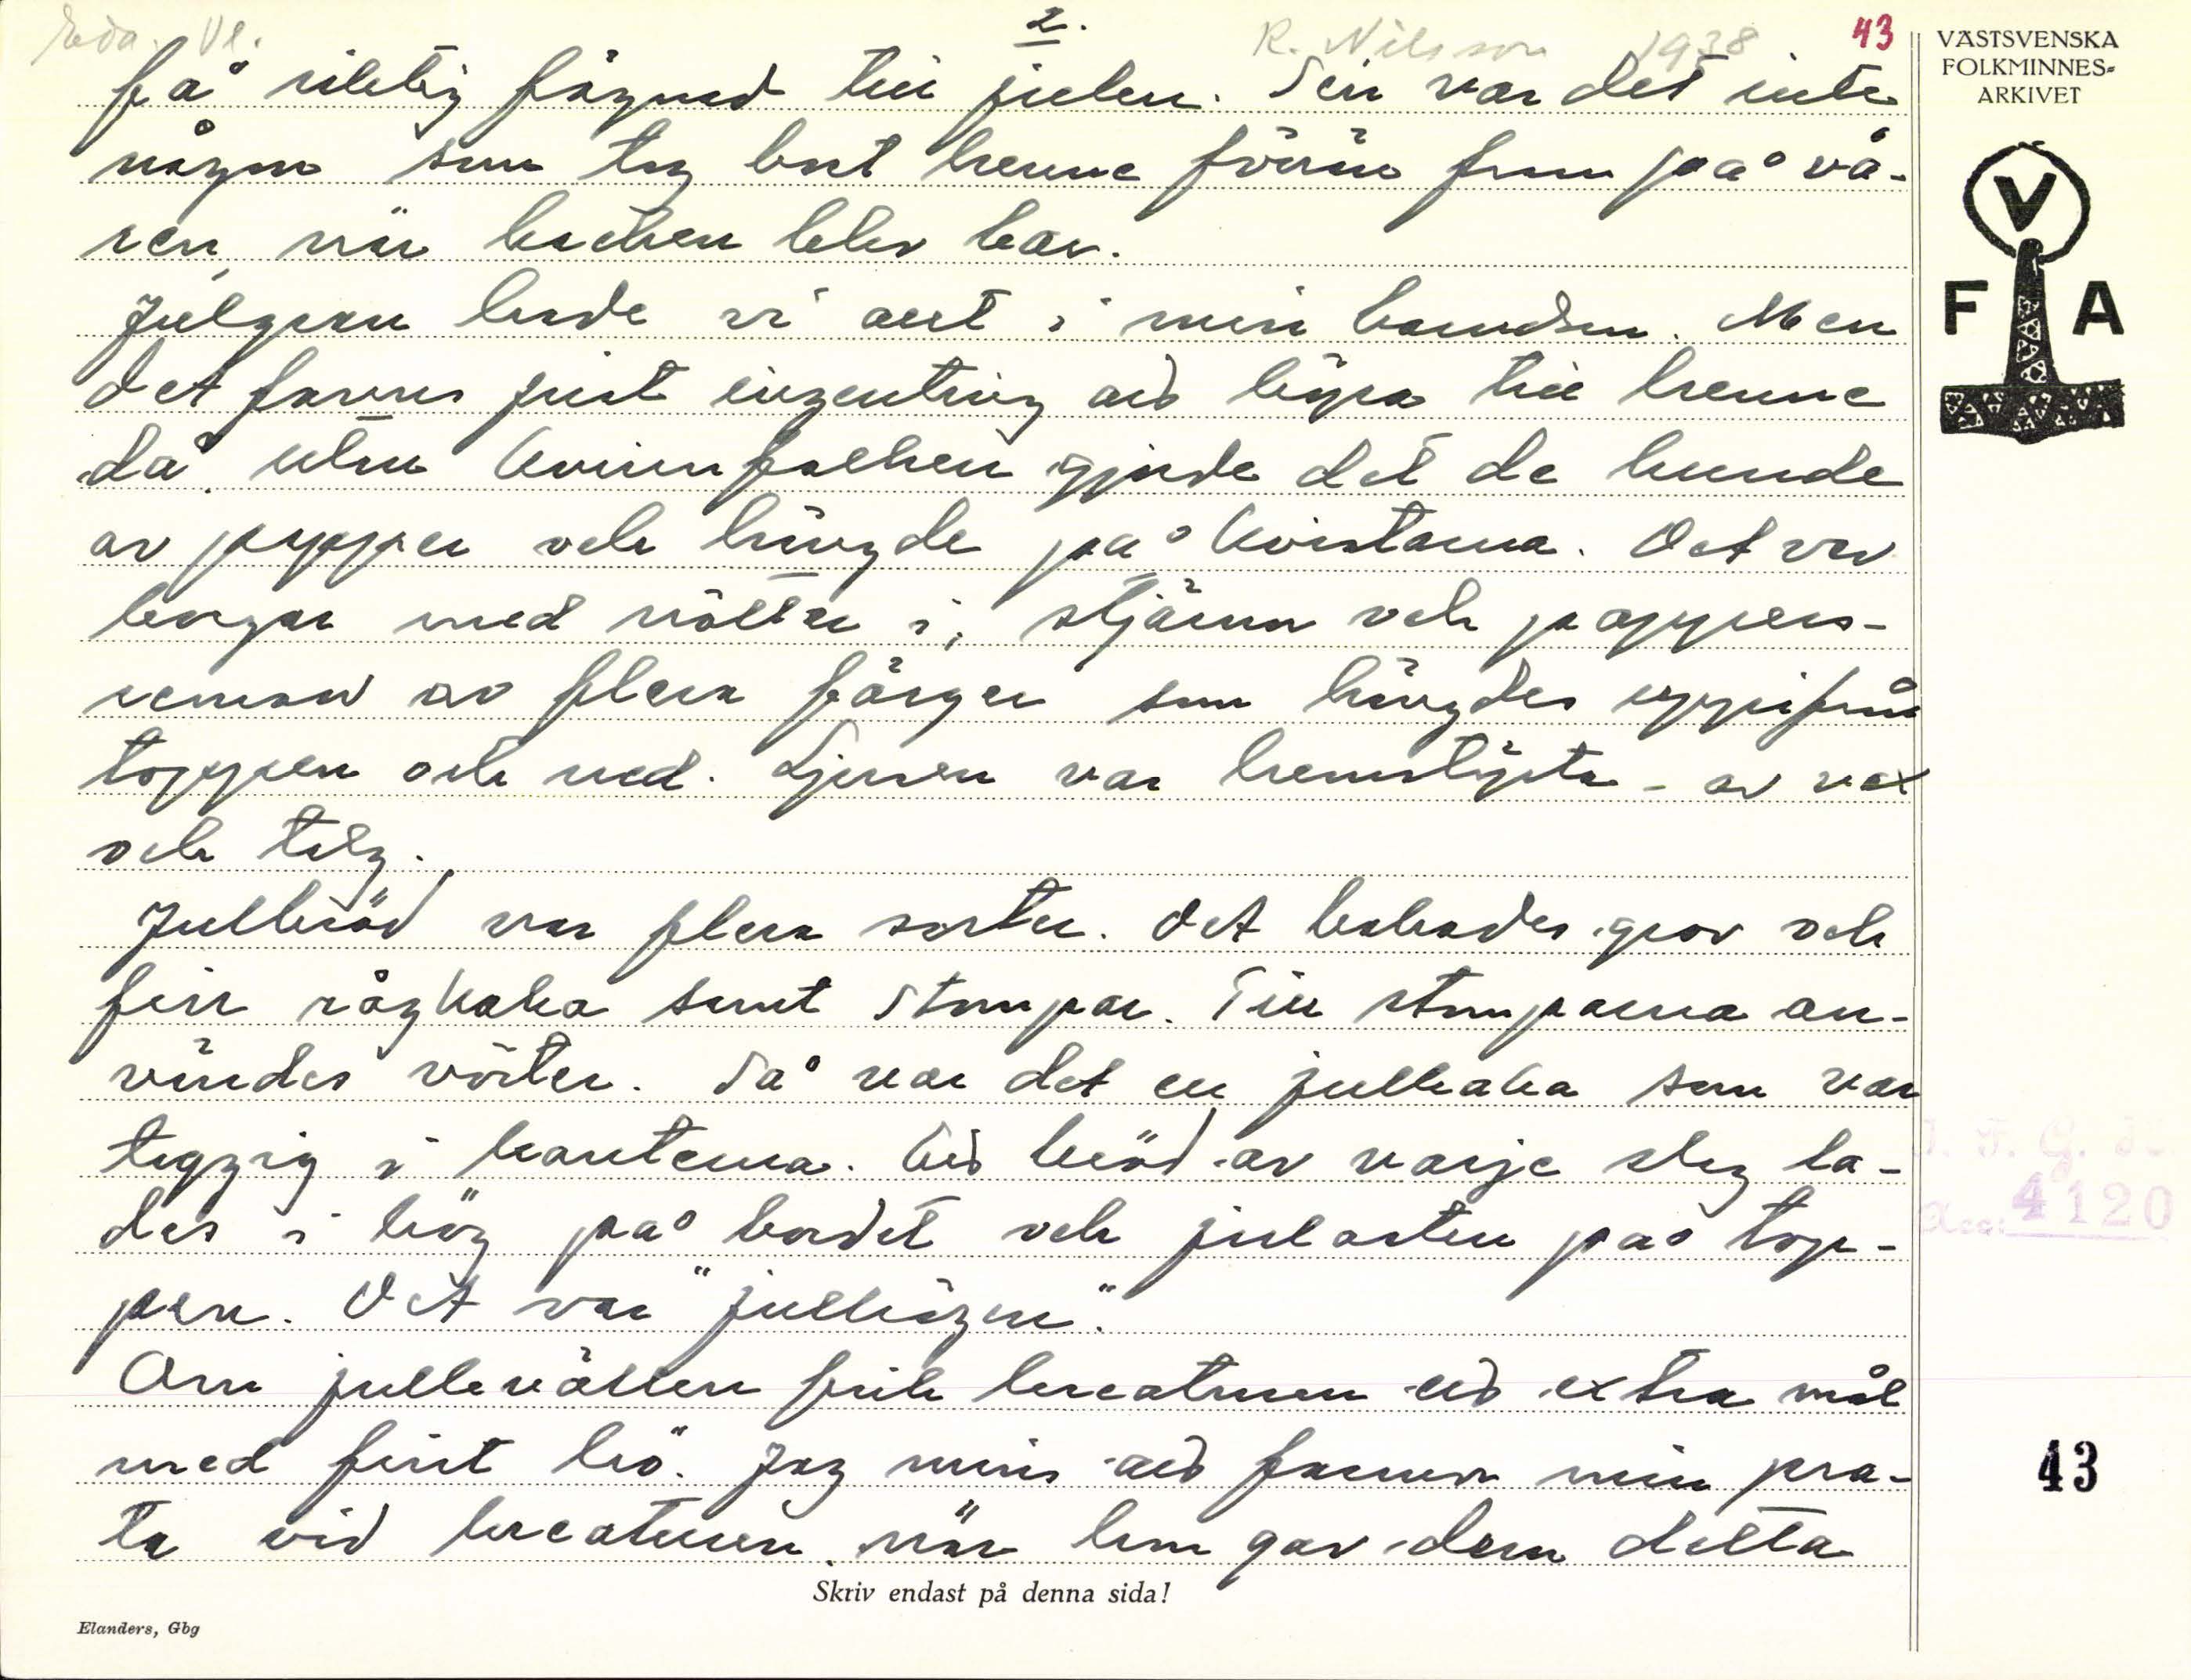 Eda. Vl. 2. R. Nilsson 1938 43
få riktig fägnad till julen. Sen var det inte
någon som tog bort henne förrän fram på vå-
ren, när backen blev bar.
Julgran hade vi allt i min barndom. Men
det fanns just ingenting að köpa till henne
då, utan kvinnfolken gjorde det de kunde
av papper och hängde på kvistarna. Det var
korgar med nötter i, stjärnor och pappers-
remsor av flera färger som hängdes uppifrån
toppen och ned. Ljusen var hemstöpta - av vax
och talg.
Julbröd var flera sorter. Det bakades grov och
fin rågkaka samt stompar. Till stomparna an-
vändes vörten. Så var det en julkaka som var
taggig i kanterna. Að bröd av varje slag la-
des i hög på bordet och julosten på top-
pen. Det var "julhögen".
Om julkvällen fick kreaturen ett extra mål
med fint hö. Jag minns að farmor min pra-
ta vid kreaturen, när hon gav dem detta
Skriv endast på denna sida!
Elanders, Gbg
VÄSTSVENSKA
FOLKMINNES-
ARKIVET
V
F A
I. F. G. H.
Acc: 4120
43